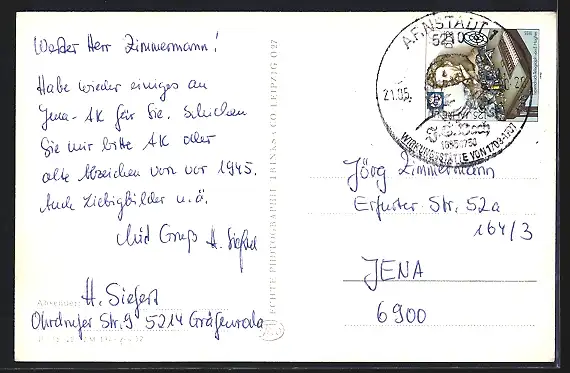 Werter Herr Zimmermann!
Habe wieder einiges an
Jena-AK für Sie. Schicken
Sie mir bitte AK oder
alte Abzeichen von vor 1945.
Auch Liebigbilder u.ä.
Mid Gruß H. Siefert
Absender:
H. Siefert
Ohrdrufer Str. 9 5214 Gräfenroda
ECHTE PHOTOGRAPHIE
CO. LEIPZIG O 27
ARNSTADT 1
5210
21.05.
J. S. Bach
1685-1750
WIRKUNGSSTÄTTE VON 1703-1707
Jörg Zimmermann
Erfurter Str. 52a
164/3
JENA
6900